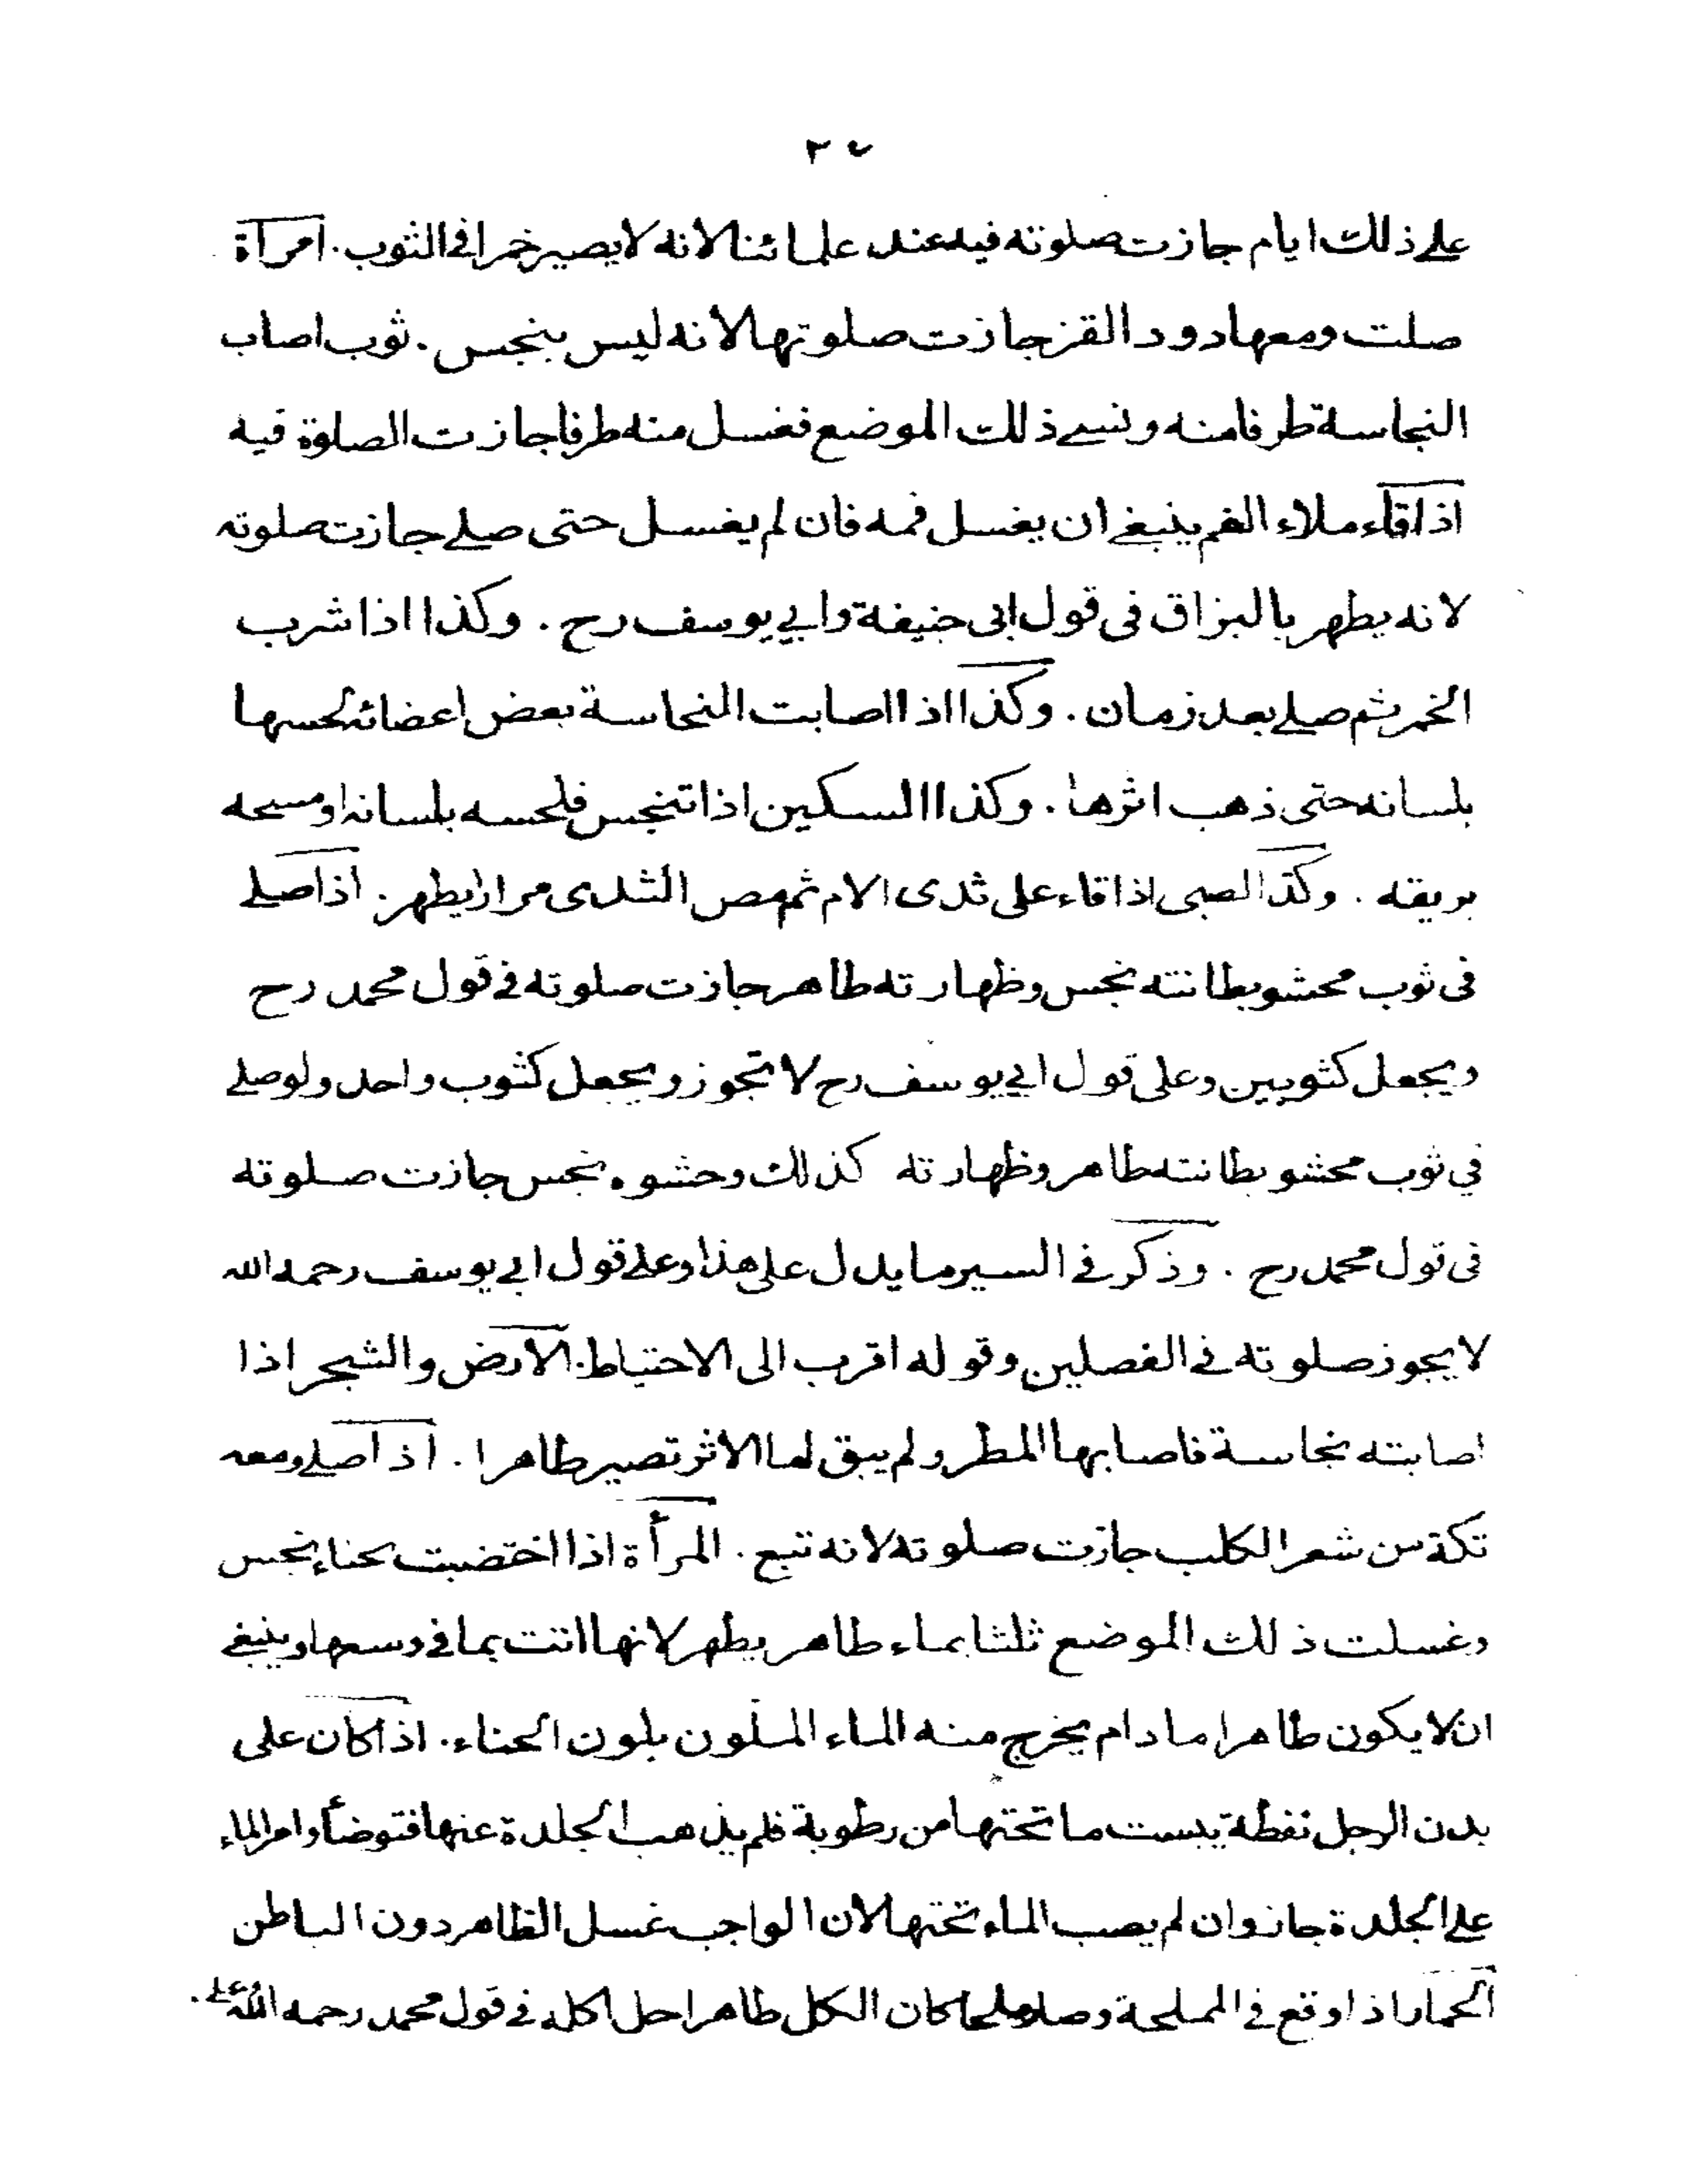 ٢٧
على ذلك ايام جازت صلوته فيه عند علمائنا لانه لايصير خمرا فى الثوب . امرأة
صلت ومعها دود القز جازت صلوتها لانه ليس بنجس . ثوب اصاب
النجاسة طرفا منه ونسى ذلك الموضع فغسل منه طرفا جازت الصلوة فيه
اذا قاء ملاء الفم ينبغى ان يغسل فمه فان لم يغسل حتى صلى جازت صلوته
لانه يطهر بالبزاق فى قول ابى حنيفة وابي يوسف رح . وكذا اذا شرب
الخمر ثم صلى بعد زمان . وكذا اذا اصابت النجاسة بعض اعضائه لحسها
بلسانه حتى ذهب اثرها . وكذا السكين اذا تنجس فلحسه بلسانه او مسحه
بريقه . وكذا الصبى اذا قاء على ثدى الام ثم مص الثدى مرارا يطهر . اذا صلى
فى ثوب محشو بطانته نجس وظهارته طاهر جازت صلوته فى قول محمد رح
ويجعل كثوبين وعلى قول ابي يوسف رح لا تجوز ويجعل كثوب واحد ولو صلى
في ثوب محشو بطانته طاهر وظهارته كذلك وحشوه نجس جازت صلوته
فى قول محمد رح . وذكر فى السير ما يدل على هذا وعلى قول ابي يوسف رحمه الله
لا يجوز صلوته فى الفصلين وقوله اقرب الى الاحتياط . الارض والشجر اذا
اصابته نجاسة فاصابها المطر ولم يبق لها الاثر تصير طاهرا . اذا صلى ومعه
تكة من شعر الكلب جازت صلوته لانه تبع . المرأة اذا اختضبت بحناء نجس
وغسلت ذلك الموضع ثلثا بماء طاهر يطهر لانها اتت بما فى وسعها وينبغى
ان لا يكون طاهرا ما دام يخرج منه الماء الملون بلون الحناء . اذا كان على
بدن الرجل نفطة يبست ما تحتها من رطوبة فلم يذهب الجلدة عنها فتوضأ وامر الماء
على الجلدة جاز وان لم يصب الماء تحتها لان الواجب غسل الظاهر دون الباطن
الحمار اذا وقع فى المملحة وصار ملحا كان الكل طاهرا حل اكله فى قول محمد رحمه الله